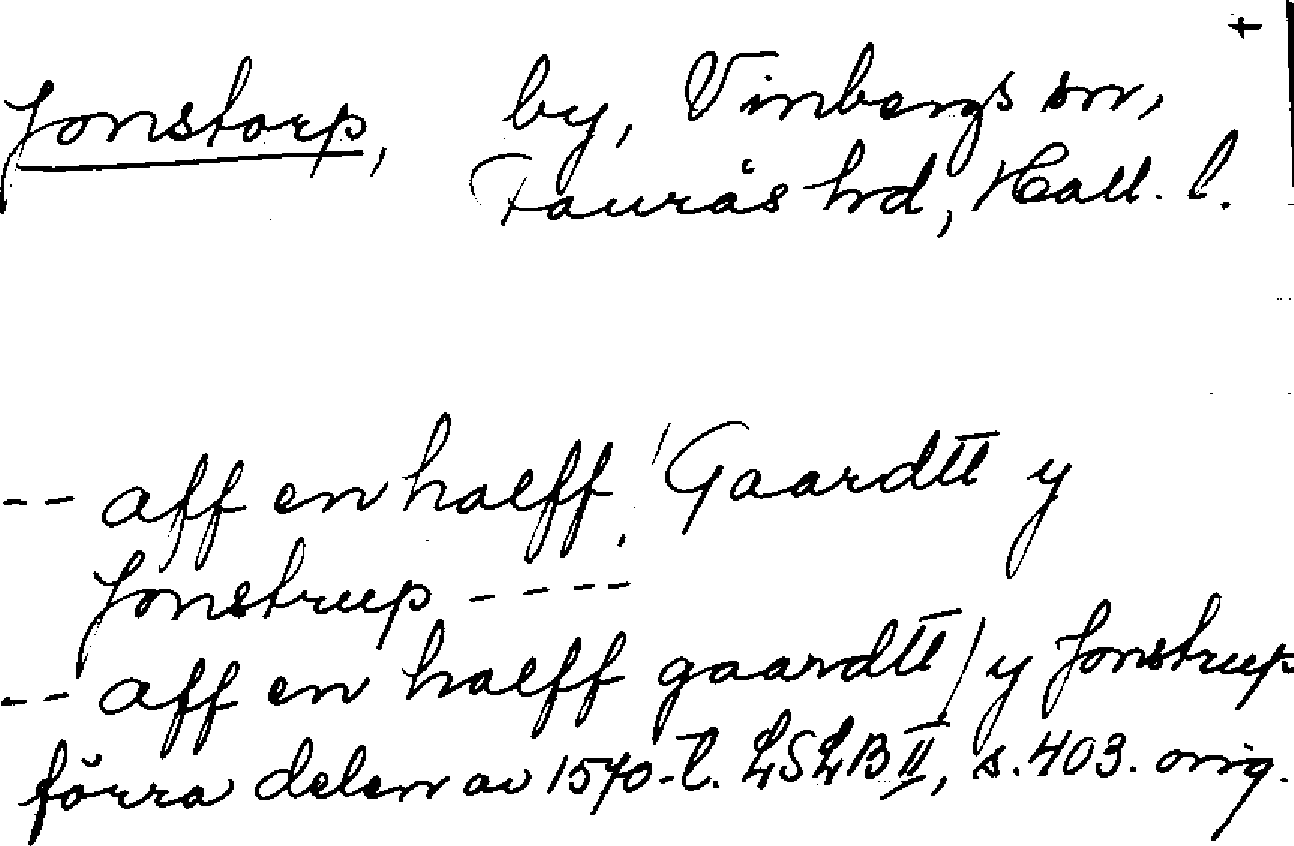 t
Jonstorp, by, Vinbergs sn,
Faurås hd, Hall. l.
-- aff en halff Gaardtt y
Jonstrup ----
-- aff en halff gaardtt / y Jonstrup
förra delen av 1570-t. LSLB II, s. 403. orig.